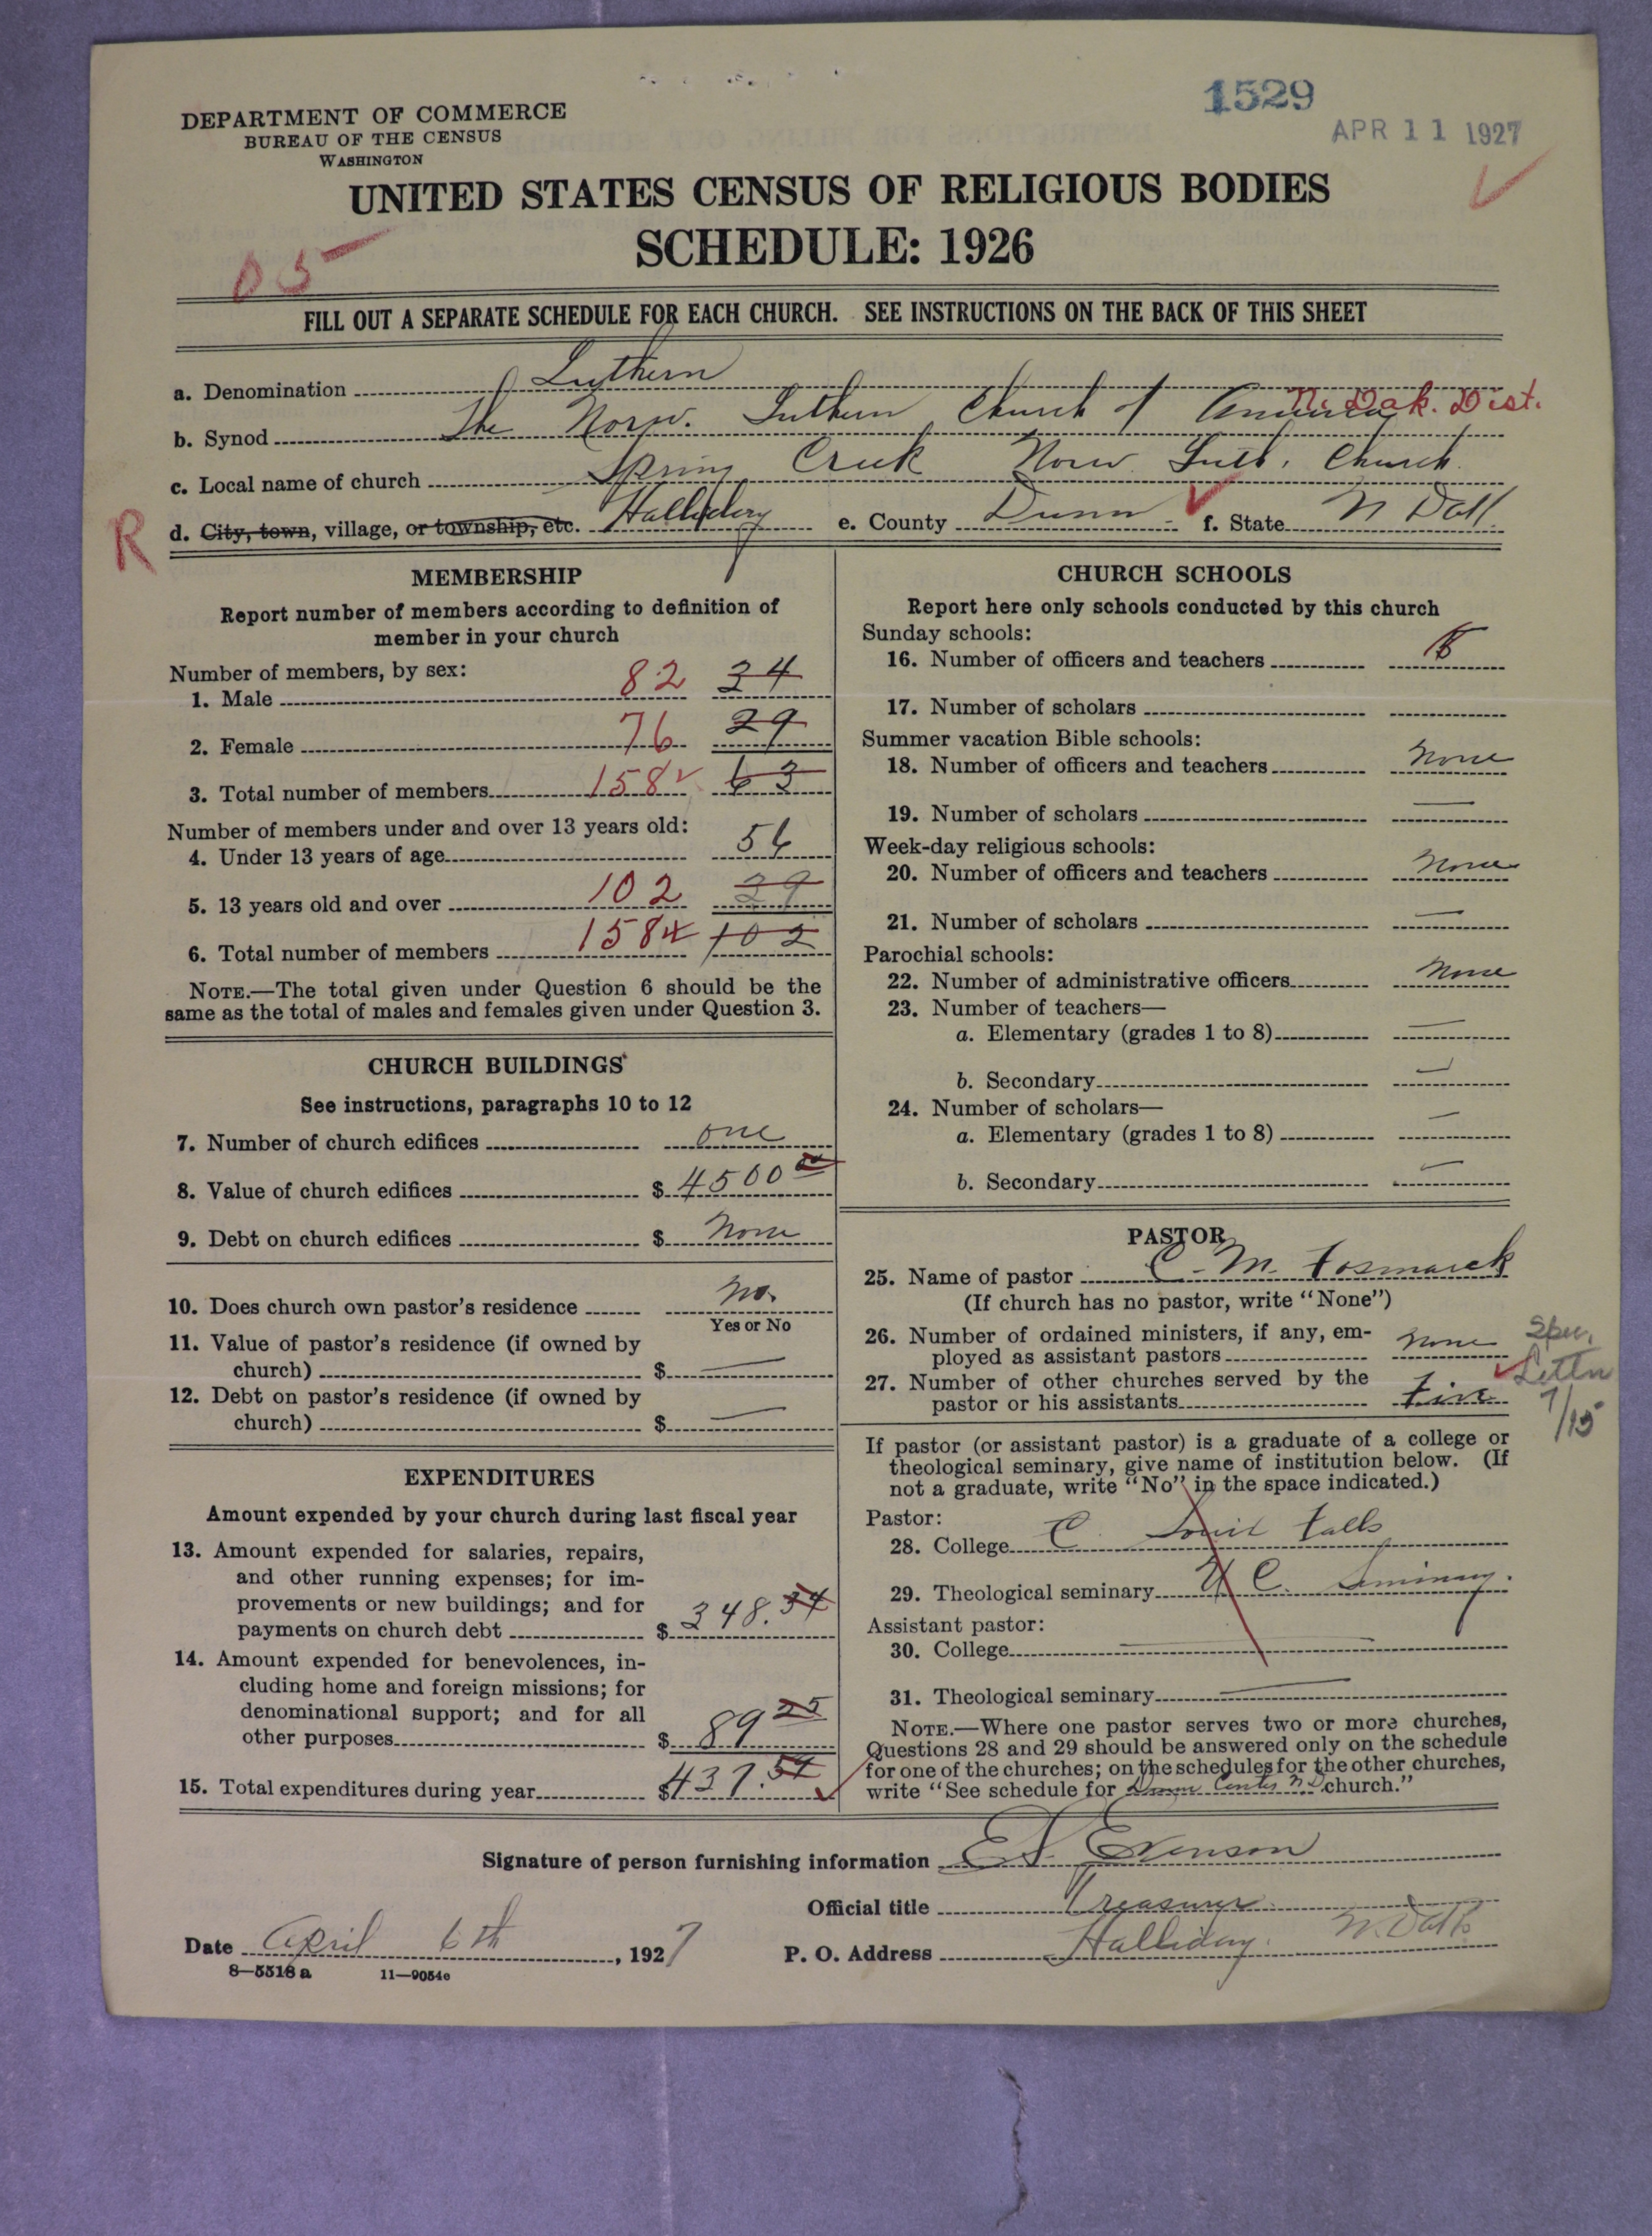 1529
APR 11 1927
DEPARTMENT OF COMMERCE
BUREAU OF THE CENSUS
WASHINGTON
UNITED STATES CENSUS OF RELIGIOUS BODIES
SCHEDULE: 1926
05
FILL OUT A SEPARATE SCHEDULE FOR EACH CHURCH. SEE INSTRUCTIONS ON THE BACK OF THIS SHEET
a. Denomination Luthern
b. Synod The Norw. Luthern Church of America N. Dak. Dist.
c. Local name of church Spring Creek Norw. Luth. Church.
R
d. City, town, village, or township, etc. Halliday e. County Dunn f. State N Dak.
MEMBERSHIP
Report number of members according to definition of
member in your church
Number of members, by sex:
1. Male 82 34
2. Female 76 29
3. Total number of members 158 63
Number of members under and over 13 years old:
4. Under 13 years of age 56
5. 13 years old and over 102 29
6. Total number of members 158 102
NOTE.—The total given under Question 6 should be the
same as the total of males and females given under Question 3.
CHURCH BUILDINGS
See instructions, paragraphs 10 to 12
7. Number of church edifices one
8. Value of church edifices $ 4500 00
9. Debt on church edifices $ None
10. Does church own pastor's residence No.
Yes or No
11. Value of pastor's residence (if owned by
church) $ —
12. Debt on pastor's residence (if owned by
church) $ —
EXPENDITURES
Amount expended by your church during last fiscal year
13. Amount expended for salaries, repairs,
and other running expenses; for im-
provements or new buildings; and for
payments on church debt $ 348.34
14. Amount expended for benevolences, in-
cluding home and foreign missions; for
denominational support; and for all
other purposes $ 89 25
15. Total expenditures during year $ 437.59
CHURCH SCHOOLS
Report here only schools conducted by this church
Sunday schools:
16. Number of officers and teachers
17. Number of scholars
Summer vacation Bible schools:
18. Number of officers and teachers None
19. Number of scholars —
Week-day religious schools:
20. Number of officers and teachers None
21. Number of scholars —
Parochial schools:
22. Number of administrative officers None
23. Number of teachers—
a. Elementary (grades 1 to 8) —
b. Secondary —
24. Number of scholars—
a. Elementary (grades 1 to 8) —
b. Secondary —
PASTOR
25. Name of pastor C. M. Fosmarck
(If church has no pastor, write "None")
26. Number of ordained ministers, if any, em-
ployed as assistant pastors None
27. Number of other churches served by the
pastor or his assistants Five
7/15
If pastor (or assistant pastor) is a graduate of a college or
theological seminary, give name of institution below. (If
not a graduate, write "No" in the space indicated.)
Pastor:
28. College Falls
29. Theological seminary U C. Seminary.
Assistant pastor:
30. College —
31. Theological seminary —
NOTE.—Where one pastor serves two or more churches,
Questions 28 and 29 should be answered only on the schedule
for one of the churches; on the schedules for the other churches,
write "See schedule for Dunn Center N D church."
Signature of person furnishing information E S. Evenson
Official title Treasurer
Date April 6th, 1927 P. O. Address Halliday. N. Dak
8—5518 a 11—9054e